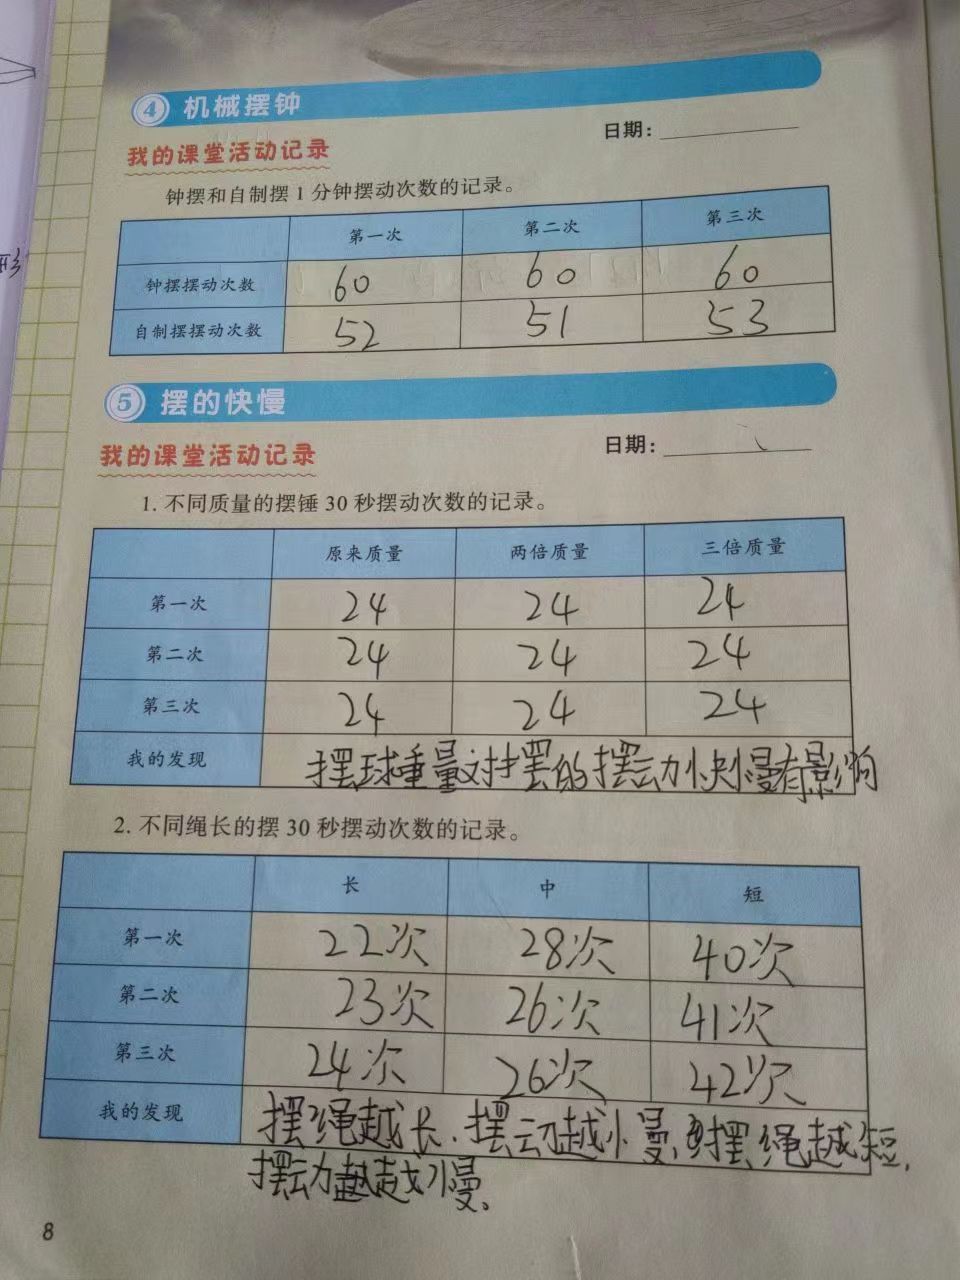 4 机械摆钟
日期：
我的课堂活动记录
钟摆和自制摆1分钟摆动次数的记录。
第一次 第二次 第三次
钟摆摆动次数 60 60 60
自制摆摆动次数 52 51 53
5 摆的快慢
日期：
我的课堂活动记录
1. 不同质量的摆锤30秒摆动次数的记录。
原来质量 两倍质量 三倍质量
第一次 24 24 24
第二次 24 24 24
第三次 24 24 24
我的发现 摆球重量对摆的摆动快慢有影响
2. 不同绳长的摆30秒摆动次数的记录。
长 中 短
第一次 22次 28次 40次
第二次 23次 26次 41次
第三次 24次 26次 42次
我的发现 摆绳越长、摆动越慢，摆绳越短，
摆动越慢。
8